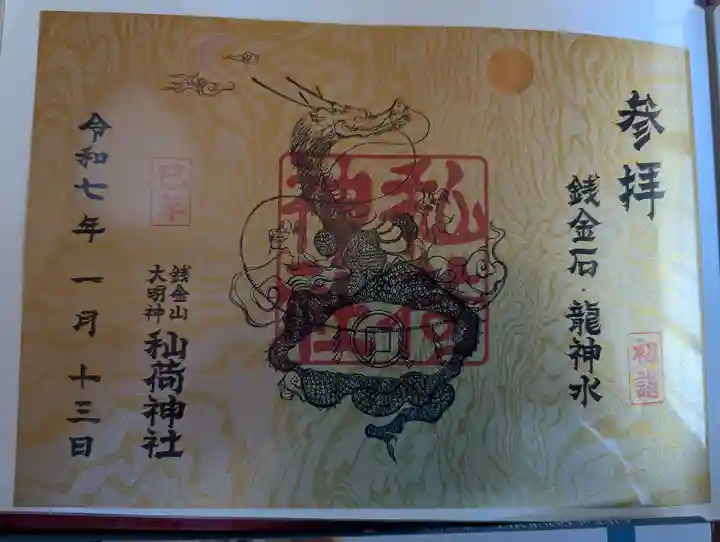 參拝
銭金石・龍神水
初詣
秈荷
神社
巳年
銭金山
大明神
秈荷神社
令和七年 一月 十三日